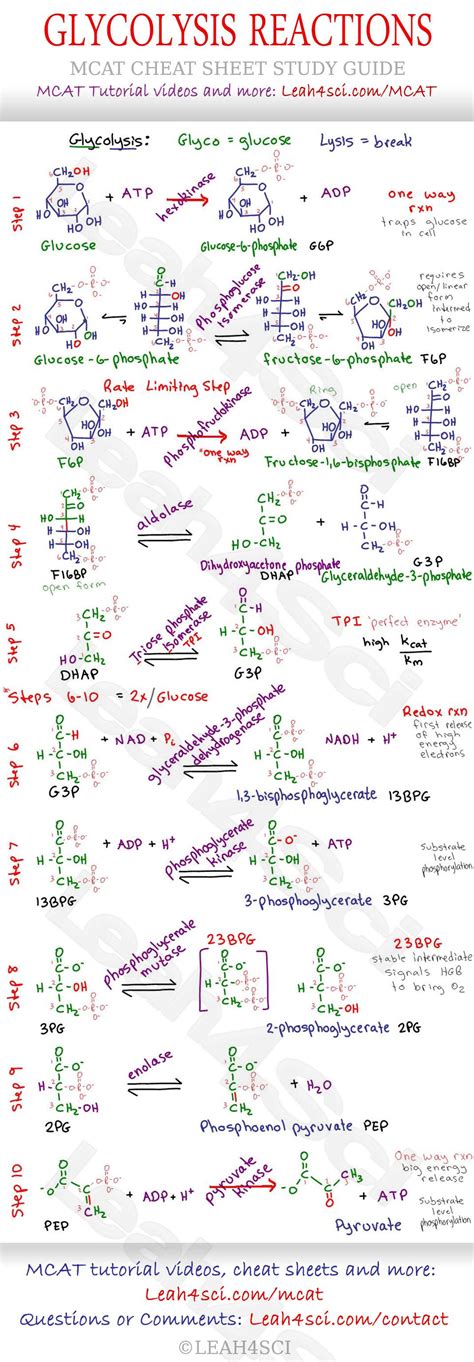 GLYCOLYSIS REACTIONS
MCAT CHEAT SHEET STUDY GUIDE
MCAT Tutorial videos and more: Leah4sci.com/MCAT
Glycolysis: Glyco = glucose Lysis = break
Step 1
Glucose
+ ATP
hexokinase
Glucose-6-phosphate G6P
+ ADP
one way
rxn
traps glucose
in cell
Step 2
Glucose-6-phosphate
Phosphoglucose
Isomerase
fructose-6-phosphate F6P
requires
open/linear
form
intermed
to
isomerize
Step 3
Rate Limiting Step
F6P
+ ATP
Phosphofructokinase
*one way
rxn
ADP +
Ring
open
Fructose-1,6-bisphosphate F16BP
Step 4
F16BP
open form
aldolase
Dihydroxyacetone phosphate
DHAP
+
G3P
Glyceraldehyde-3-phosphate
Step 5
DHAP
Triose phosphate
Isomerase
TPI
G3P
TPI 'perfect enzyme'
high kcat
Km
*Steps 6-10 = 2x/Glucose
Step 6
G3P
+ NAD + Pi
glyceraldehyde-3-phosphate
dehydrogenase
1,3-bisphosphoglycerate 13BPG
NADH + H+
Redox rxn
first release
of high
energy
electrons
Step 7
13BPG
+ ADP + H+
phosphoglycerate
kinase
3-phosphoglycerate 3PG
+ ATP
Substrate
level
phosphorylation
Step 8
3PG
phosphoglycerate
mutase
23BPG
2-phosphoglycerate 2PG
23BPG
stable intermediate
signals HGB
to bring O2
Step 9
2PG
enolase
Phosphoenol pyruvate PEP
+ H2O
Step 10
PEP
+ ADP + H+
pyruvate
kinase
Pyruvate
+ ATP
One way rxn
big energy
release
Substrate
level
phosphorylation
MCAT tutorial videos, cheat sheets and more:
Leah4sci.com/mcat
Questions or Comments: Leah4sci.com/contact
©LEAH4SCI